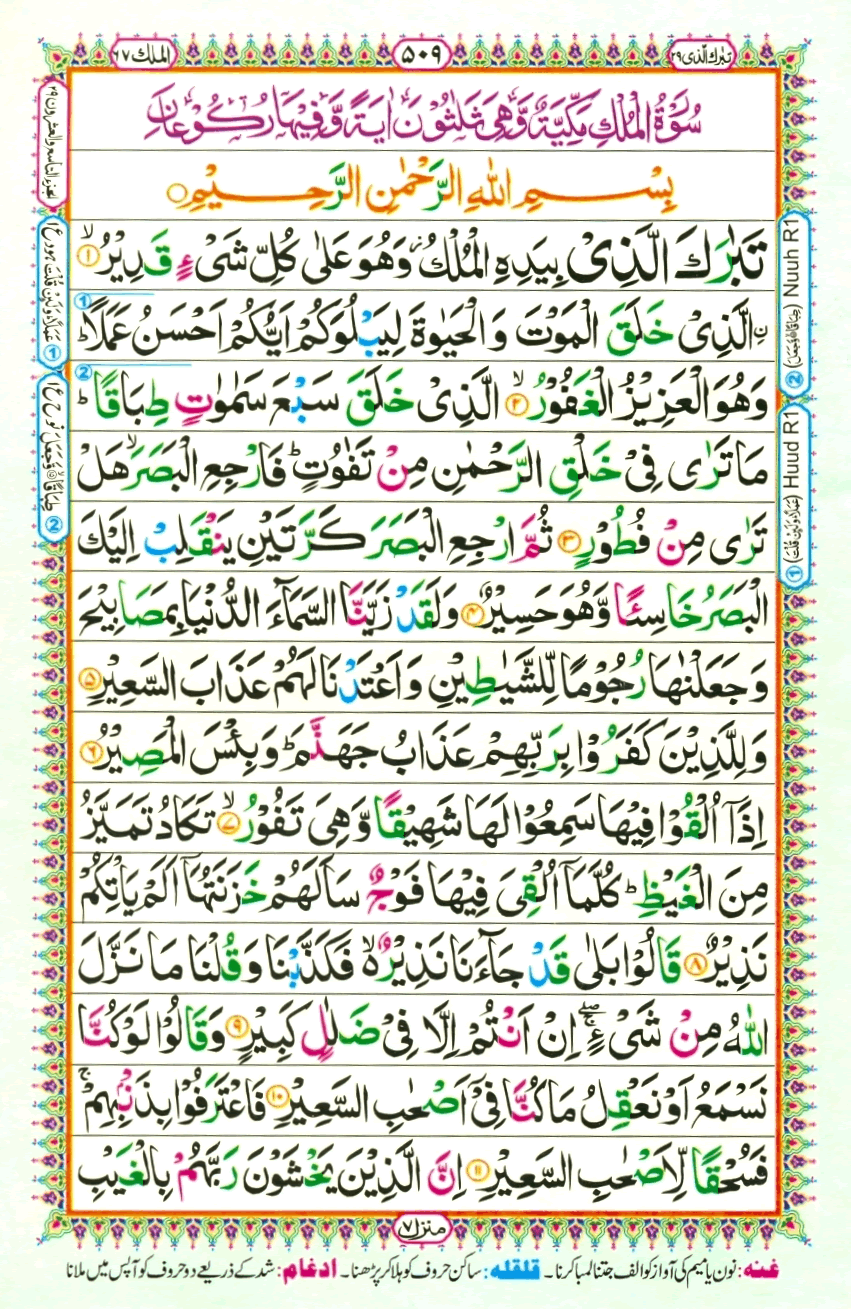 تبٰرك الّذى ٢٩
٥٠٩
الملك ٦٧
سُوۡرَةُ الۡمُلۡكِ مَكِّيَّةٌ وَّهِىَ ثَلٰثُوۡنَ اٰيَةً وَّفِيۡهَا رُكُوۡعَانِ
بِسۡمِ اللّٰهِ الرَّحۡمٰنِ الرَّحِيۡمِ
تَبٰرَكَ الَّذِىۡ بِيَدِهِ الۡمُلۡكُ ۫ وَهُوَ عَلٰى كُلِّ شَىۡءٍ قَدِيۡرُ ۙ‏﴿۱﴾
۟الَّذِىۡ خَلَقَ الۡمَوۡتَ وَالۡحَيٰوةَ لِيَبۡلُوَكُمۡ اَيُّكُمۡ اَحۡسَنُ عَمَلًا ؕ
وَهُوَ الۡعَزِيۡزُ الۡغَفُوۡرُ ۙ‏﴿۲﴾ الَّذِىۡ خَلَقَ سَبۡعَ سَمٰوٰتٍ طِبَاقًا ؕ
مَا تَرٰى فِىۡ خَلۡقِ الرَّحۡمٰنِ مِنۡ تَفٰوُتٍ ؕ فَارۡجِعِ الۡبَصَرَ ۙ هَلۡ
تَرٰى مِنۡ فُطُوۡرٍ‏﴿۳﴾ ثُمَّ ارۡجِعِ الۡبَصَرَ كَرَّتَيۡنِ يَنۡقَلِبۡ اِلَيۡكَ
الۡبَصَرُ خَاسِئًا وَّهُوَ حَسِيۡرٌ‏﴿۴﴾ وَلَقَدۡ زَيَّنَّا السَّمَآءَ الدُّنۡيَا بِمَصَابِيۡحَ
وَجَعَلۡنٰهَا رُجُوۡمًا لِّلشَّيٰطِيۡنِ وَاَعۡتَدۡنَا لَهُمۡ عَذَابَ السَّعِيۡرِ‏﴿۵﴾
وَلِلَّذِيۡنَ كَفَرُوۡا بِرَبِّهِمۡ عَذَابُ جَهَنَّمَ ؕ وَبِئۡسَ الۡمَصِيۡرُ‏﴿۶﴾
اِذَاۤ اُلۡقُوۡا فِيۡهَا سَمِعُوۡا لَهَا شَهِيۡقًا وَّهِىَ تَفُوۡرُ ۙ‏﴿۷﴾ تَكَادُ تَمَيَّزُ
مِنَ الۡغَيۡظِ ؕ كُلَّمَاۤ اُلۡقِىَ فِيۡهَا فَوۡجٌ سَاَلَهُمۡ خَزَنَتُهَاۤ اَلَمۡ يَاۡتِكُمۡ
نَذِيۡرٌ‏﴿۸﴾ قَالُوۡا بَلٰى قَدۡ جَآءَنَا نَذِيۡرٌ ۙ۬ فَكَذَّبۡنَا وَقُلۡنَا مَا نَزَّلَ
اللّٰهُ مِنۡ شَىۡءٍ ۖۚ اِنۡ اَنۡتُمۡ اِلَّا فِىۡ ضَلٰلٍ كَبِيۡرٍ‏﴿۹﴾ وَقَالُوۡا لَوۡ كُنَّا
نَسۡمَعُ اَوۡ نَعۡقِلُ مَا كُنَّا فِىۡۤ اَصۡحٰبِ السَّعِيۡرِ‏﴿۱۰﴾ فَاعۡتَرَفُوۡا بِذَنۡۢبِهِمۡ ۚ
فَسُحۡقًا لِّاَصۡحٰبِ السَّعِيۡرِ‏﴿۱۱﴾ اِنَّ الَّذِيۡنَ يَخۡشَوۡنَ رَبَّهُمۡ بِالۡغَيۡبِ
منزل ٧
غنه: نون یا میم کی آواز کو الف جتنا لمبا کرنا۔ قلقله: ساکن حروف کو ہلا کر پڑھنا۔ ادغام: شد کے ذریعے دو حروف کو آپس میں ملانا
② (طِبَاقًا وَّجَعَلَ) Nuuh R1
① (عَمَلًا وَلَئِنْ قُلْتَ) Huud R1
الجزء التاسع والعشرون ٢٩
① عَمَلًا وَّلَئِنْ قُلْتَ ہود ع١
② طِبَاقًا وَّجَعَلَ نوح ع١